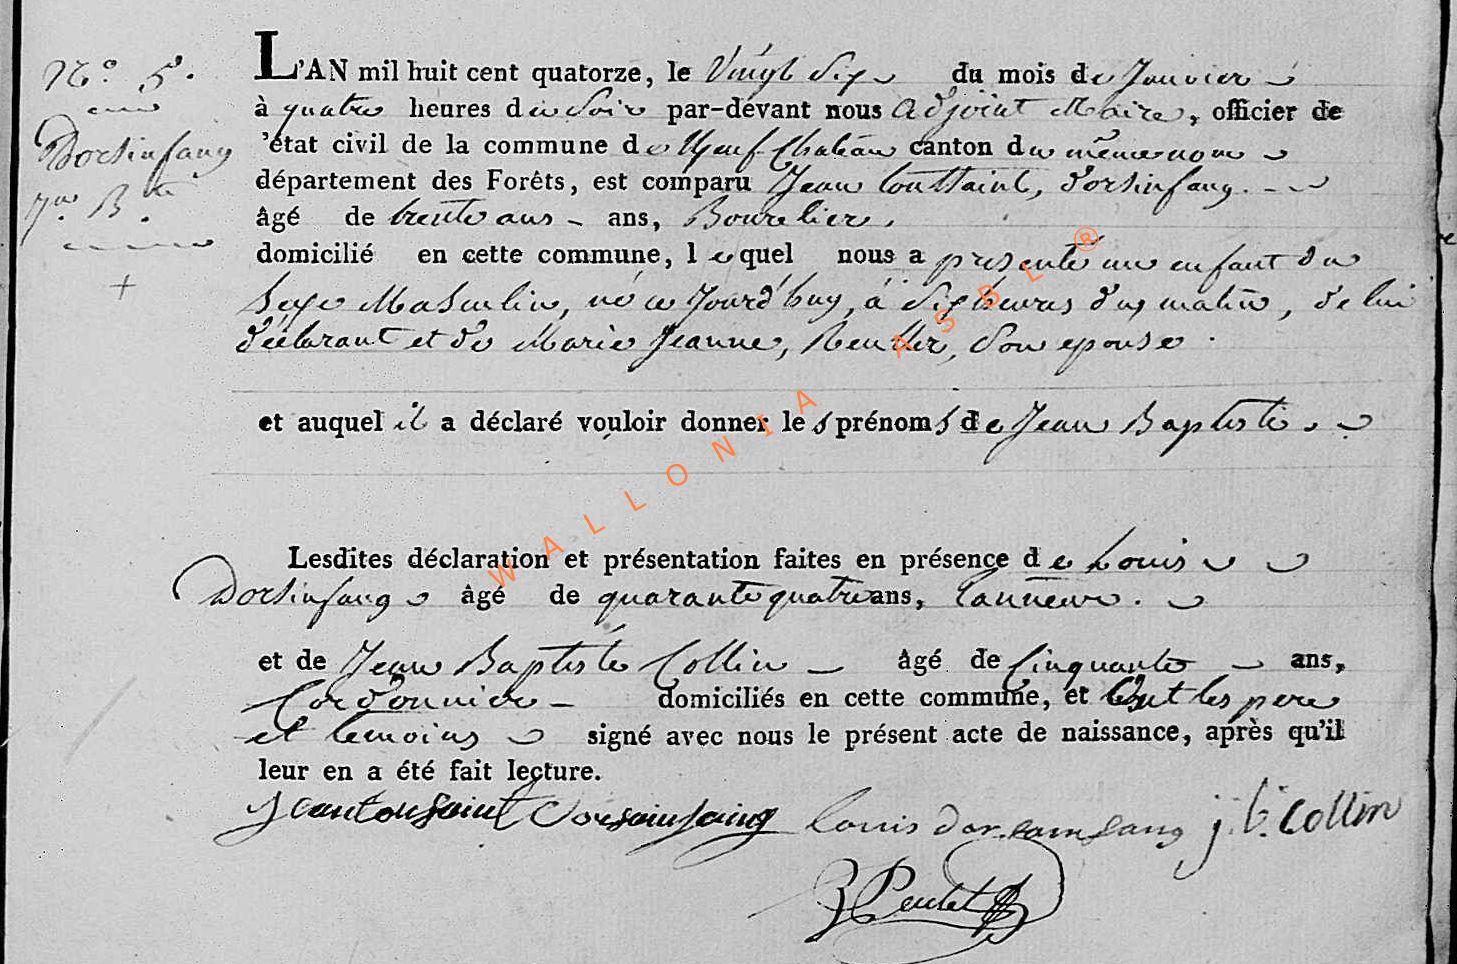 N.o 5.
Dorsinfang
Jn. B.te
+
L'AN mil huit cent quatorze, le Vingt Six du mois de Janvier
à quatre heures du Soir par-devant nous adjoint Maire, officier de
'état civil de la commune de Neuf Chateau canton du même nom
département des Forêts, est comparu Jean toussaint, dorsinfang.
âgé de trente ans ans, Bourelier,
domicilié en cette commune, lequel nous a presenté un enfant du
Sexe Masculin, né ce Jourd'huy, à Six heures du matin, de lui
déclarant et de Marie Jeanne, son epouse.
et auquel il a déclaré vouloir donner les prénoms de Jean Baptiste.
Lesdites déclaration et présentation faites en présence de Louis
Dorsinfang âgé de quarante quatre ans, tanneur.
et de Jean Baptiste Collin âgé de Cinquante ans,
Cordonnier domiciliés en cette commune, et ont les pere
et temoins signé avec nous le présent acte de naissance, après qu'il
leur en a été fait lecture.
Jeantousaint Dorsainfaing louis dorsainfang j. b. Collin
WALLONIA ASBL ®